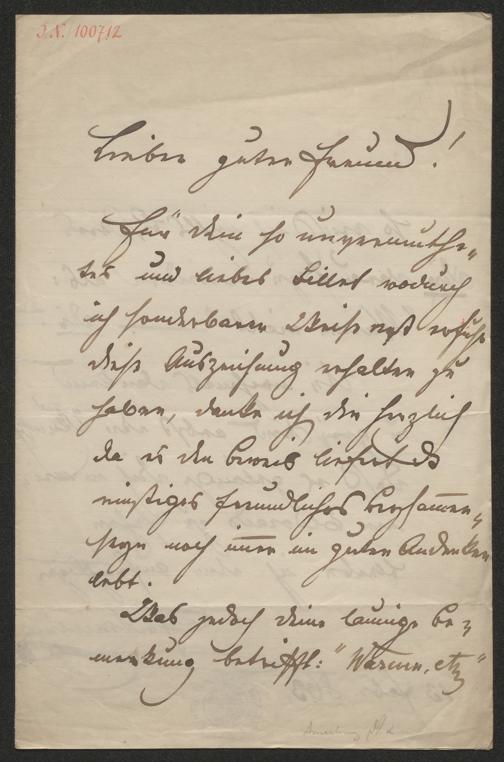 I.N. 100712
Lieber guter Freund!
Für dein so unvermuthe„
tes und liebes Billet wodurch
ich sonderbarer Weise erst erfuhr
diese Auszeichnung erhalten zu
haben, danke ich dir herzlich
da es den Beweis liefert das
einstiges freundliches beysamen„
seyn noch imer im guten Andenken
lebt.
Was jedoch deine launige Be„
merkung betrifft: "Warum, etz"